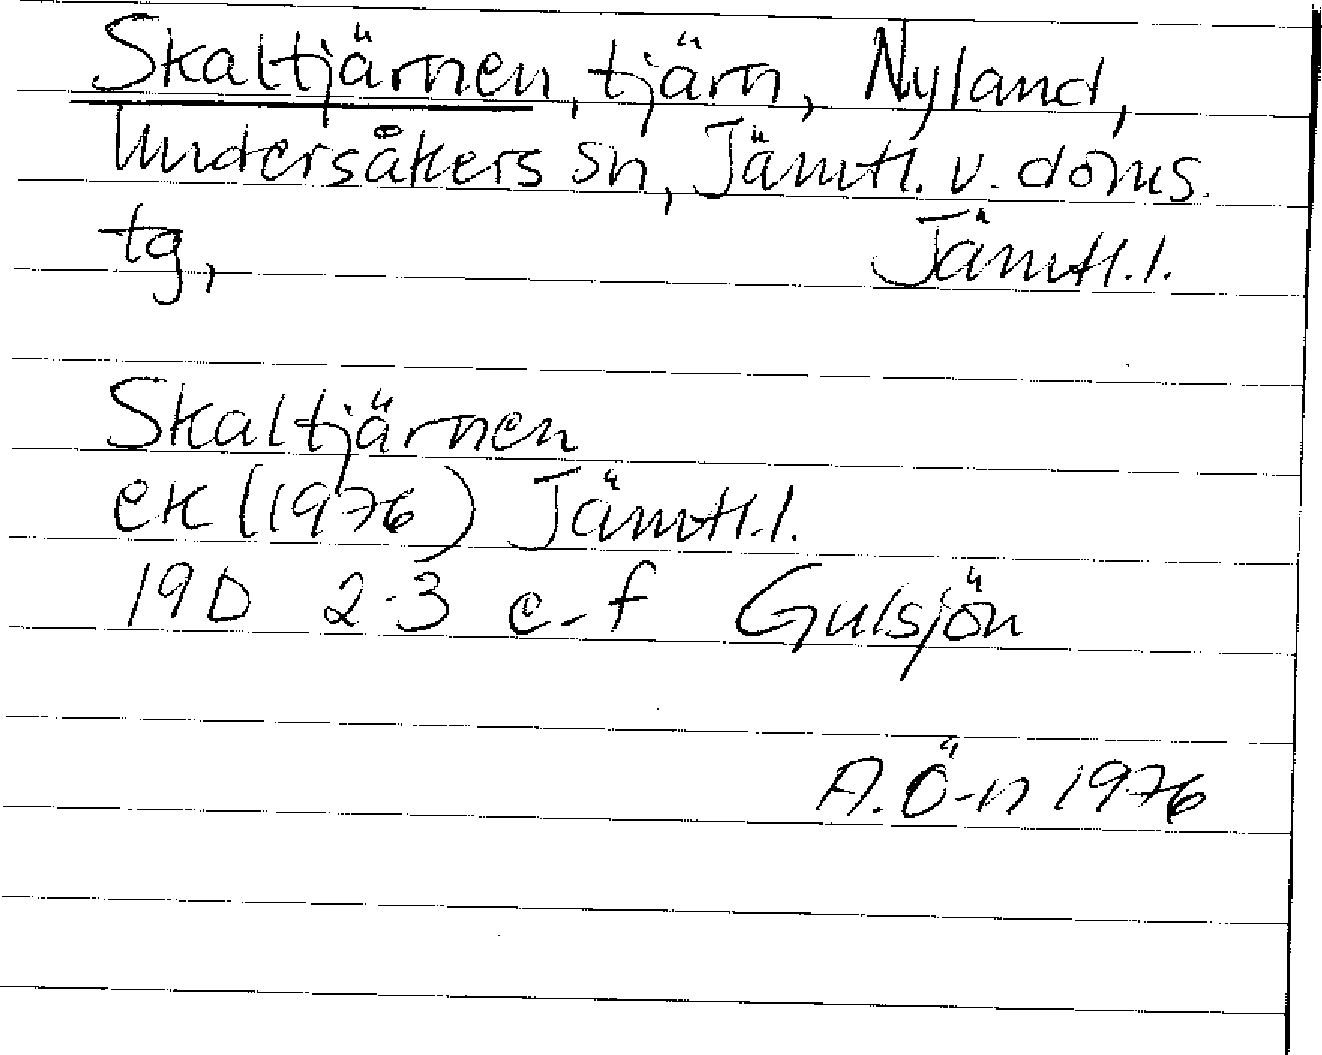 Skaltjärnen, tjärn, Nyland,
Undersåkers sn, Jämtl. v. doms.
tg, Jämtl. l.
Skaltjärnen
ek (1976) Jämtl. l.
19D 2-3 e-f Gulsjön
A. Ö-n 1976